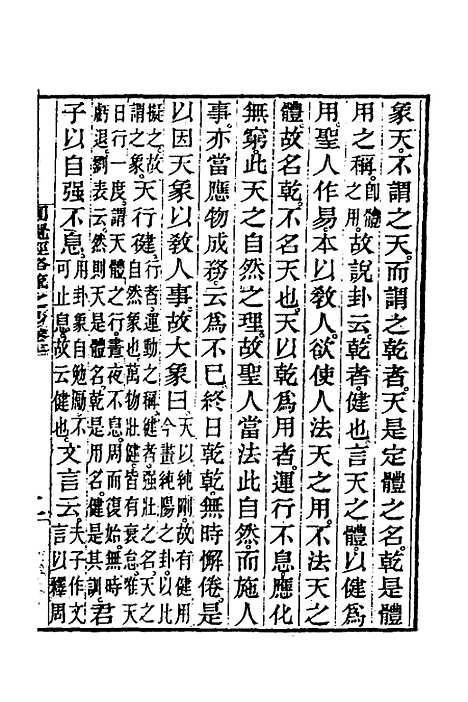 象天。不謂之天。而謂之乾者。天是定體之名。乾是體
用之稱。即體之用。故說卦云。乾者。健也。言天之體。以健爲
用。聖人作易。本以敎人。欲使人法天之用。不法天之
體。故名乾。不名天也。天以乾爲用者。運行不息。應化
無窮。此天之自然之理。故聖人當法此自然。而施人
事。亦當應物成務。云爲不已。終日乾乾。無時懈倦。是
以因天象以敎人事。故大象曰。天以純剛。故有健用。今畫純陽之卦。以比
擬之。故謂之象。天行健。行者。運動之稱。健者。强壯之名。天之自然象也。萬物壯健。皆有衰怠。唯天
日行一度。謂天體之行。晝夜不息。周而復始。無時虧退。劉表云。然則天是體名。乾是用名。健是其訓。君
子以自强不息。用卦象自勉勵。不可止息。故云健也。文言云。夫子作文言以釋周
圓覺經略疏之鈔卷